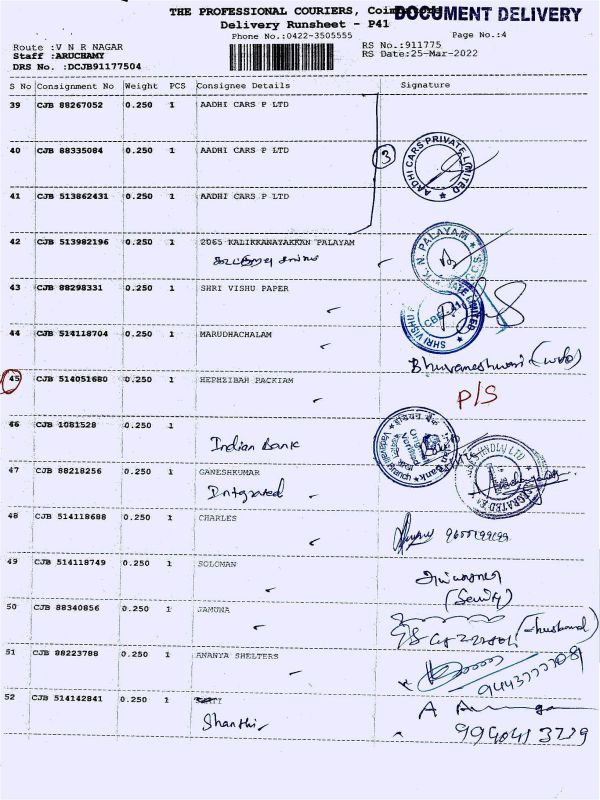 THE PROFESSIONAL COURIERS, Coimbatore
DOCUMENT DELIVERY
Delivery Runsheet - P41
Phone No.:0422-3505555
Page No.:4
Route :V N R NAGAR
RS No.:911775
Staff :ARUCHAMY
RS Date:25-Mar-2022
DRS No. :DCJB91177504
S No Consignment No Weight PCS Consignee Details Signature
39 CJB 88267052 0.250 1 AADHI CARS P LTD
40 CJB 88335084 0.250 1 AADHI CARS P LTD
3
AADHI CARS PRIVATE LIMITED
41 CJB 513862431 0.250 1 AADHI CARS P LTD
42 CJB 513982196 0.250 1 2065 KALIKKANAYAKKAN PALAYAM
K. N. PALAYAM
43 CJB 88298331 0.250 1 SHRI VISHU PAPER
SHRI VISHU
LIMITED
44 CJB 514118704 0.250 1 MARUDHACHALAM
Bhuvaneshwari (wife)
45 CJB 514051680 0.250 1 HEPHZIBAH PACKIAM
P/S
46 CJB 1081528 0.250 1
Indian Bank
47 CJB 88218256 0.250 1 GANESHKUMAR
Intgrated
48 CJB 514118688 0.250 1 CHARLES
49 CJB 514118749 0.250 1 SOLOMAN
50 CJB 88340856 0.250 1 JAMUNA
(husband)
51 CJB 88223788 0.250 1 ANANYA SHELTERS
52 CJB 514142841 0.250 1
Shanthi
A
9940413729